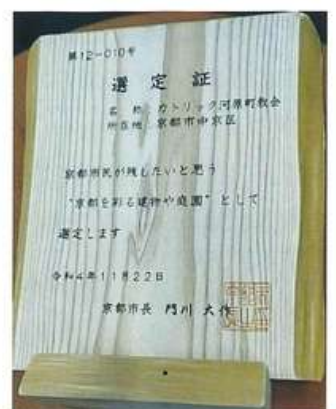 第12-010号
選定証
名称 カトリック河原町教会
所在地 京都市中京区
京都市民が残したいと思う
"京都を彩る建物や庭園"として
選定します
令和4年11月22日
京都市長 門川 大作